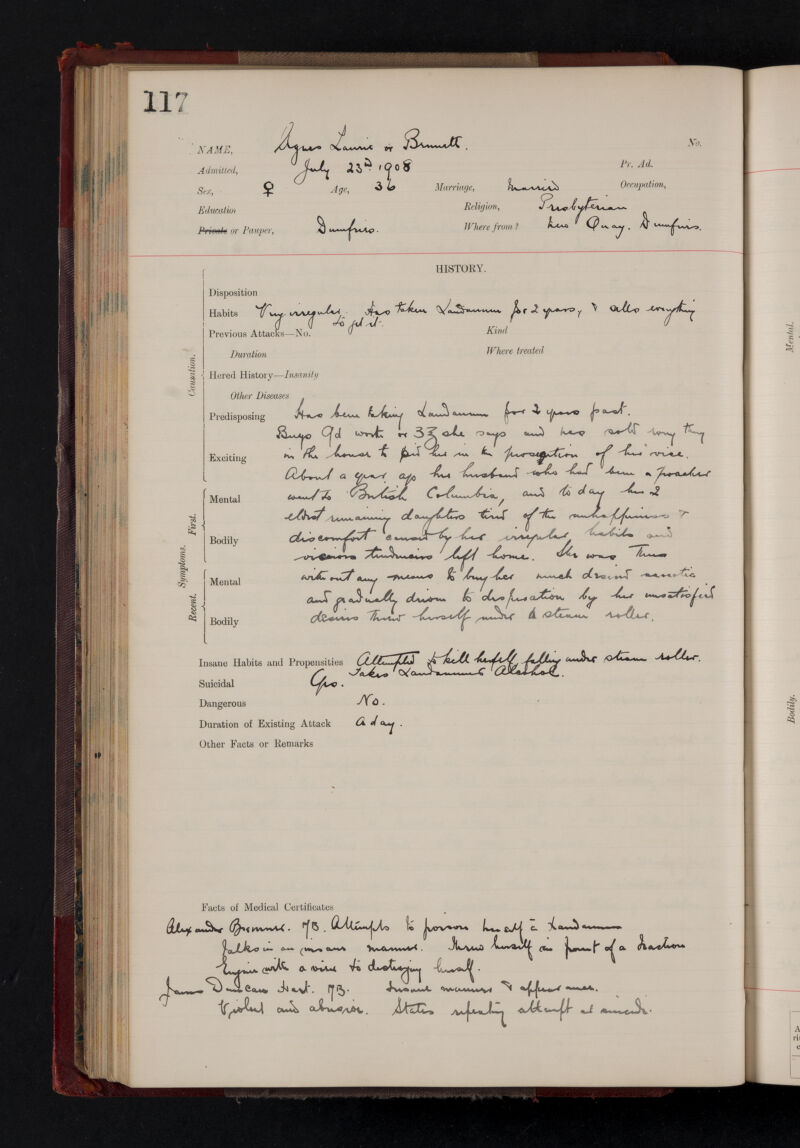 117
NAME, Agnes Laurie or Bennett. No.
Admitted, July 23rd 1908 Pr. Ad.
Sex, ♀ Age, 36 Marriage, Married Occupation,
Education Religion, Presbyterian
Private or Pauper, Dumfries. Where from? New Quay. Dumfries.
HISTORY.
Disposition
Habits Very irregular. Has taken Laudanum for 2 years, & sells everything
to get it.
Previous Attacks—No. Kind
Duration Where treated
Causation.
Hered History—Insanity
Other Diseases
Predisposing Has been taking Laudanum for 2 years past.
Buys 9d worth or 3℥ she says and has sold every thing
Exciting in the house to aid her in the of her vice.
About a year ago her husband who had been a poacher
Mental went to British Columbia, and to day her 2
eldest remaining daughters tired of the unhappiness &
First.
Bodily discomfort caused by her irregular habits and
vicious tendencies left home. She was thus
Symptoms.
Mental without any means to buy her much desired narcotic
and gradually driven to desperation by her unsatisfied
Recent.
Bodily desires threw herself under a steam roller.
Insane Habits and Propensities Attempted to kill herself falling under steam roller.
Takes Laudanum & Alcohol.
Suicidal Yes.
Dangerous No.
Duration of Existing Attack A day.
Other Facts or Remarks
Facts of Medical Certificates
Alexander MB. Attempts to poison herself c̄ Laudanum
Talks in an insane manner. Threw herself in front of a Traction
Engine with a view to destroying herself.
James Duncan Hart. MB. Insane manner & appearance.
Violent and abusive. States repeating attempt at suicide.
Mental.
Bodily.